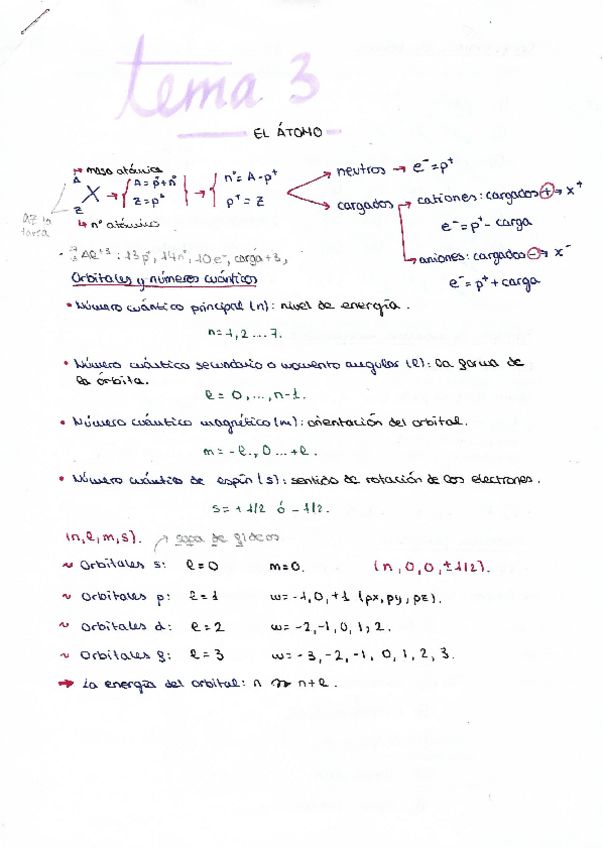 tema 3
EL ÁTOMO
→ masa atómica
A
X → { A = p⁺ + n° → { n° = A - p⁺ → neutros → e⁻ = p⁺
Z
Z = p⁺ p⁺ = Z → cargados → cationes: cargados + → x⁺
↳ n° atómico
e⁻ = p⁺ - carga
aniones: cargados - → x⁻
e⁻ = p⁺ + carga
Al⁺³: 13p⁺, 14n°, 10e⁻, carga +3,
Orbitales y números cuánticos
• Número cuántico principal (n): nivel de energía.
n = 1, 2 .... 7.
• Número cuántico secundario o momento angular (l): la forma de
la órbita.
l = 0, ..., n-1.
• Número cuántico magnético (m): orientación del orbital.
m = -l.., 0 ... +l.
• Número cuántico de espín (s): sentido de rotación de los electrones.
s = +1/2 ó -1/2.
(n, l, m, s). → sopa de fideos
~ Orbitales s: l = 0 m = 0. (n, 0, 0, ±1/2).
~ Orbitales p: l = 1 m = -1, 0, +1 (px, py, pz).
~ Orbitales d: l = 2 m = -2, -1, 0, 1, 2.
~ Orbitales f: l = 3 m = -3, -2, -1, 0, 1, 2, 3.
→ La energía del orbital: n → n+l.